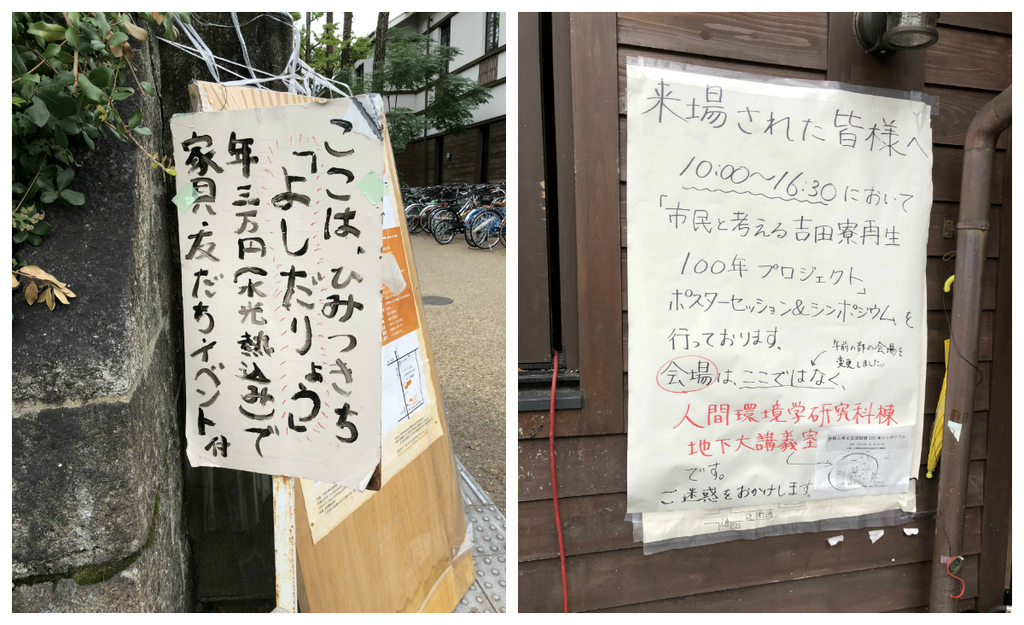 ここは、ひみつきち
「よしだりょう」
年三万円(水光熱込み)で
家具・友だち・イベント付
来場された皆様へ
10:00～16:30において
「市民と考える吉田寮再生
100年プロジェクト」
ポスターセッション&シンポジウムを
行っております。
午前の部の会場を
変更しました。
会場は、ここではなく、
人間環境学研究科棟
地下大講義室
です。
ご迷惑をおかけします。